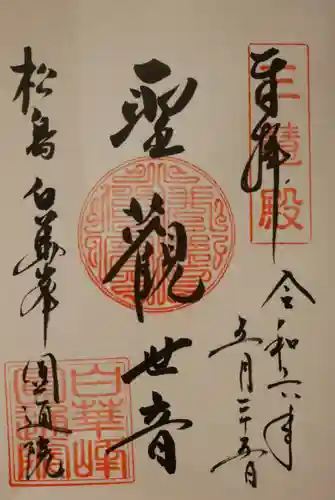 奉拝
三慧殿
令和六年
五月二十五日
聖観世音
松島 白華峯 圓通院
白華峰